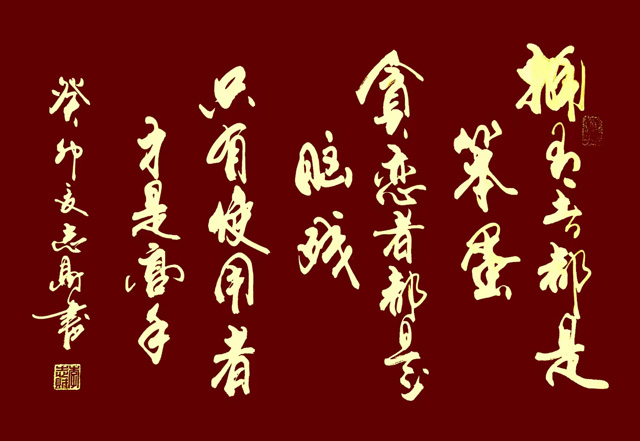 拥有者都是
笨蛋
贪恋者都是
脑残
只有使用者
才是高手
癸卯夏志书